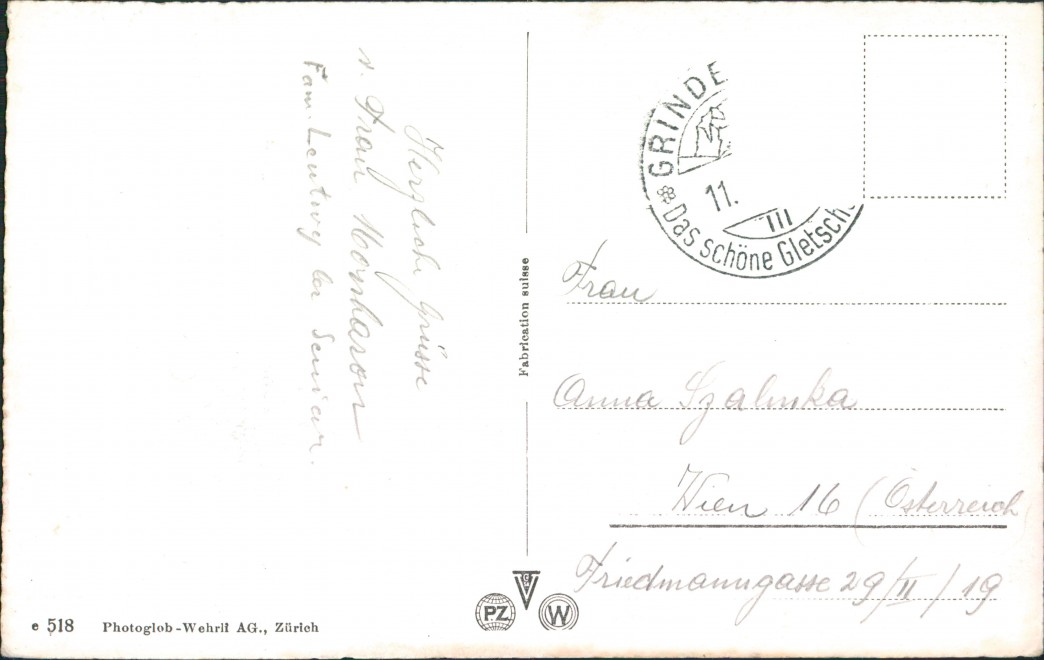 Herzliche Grüsse
v. Frau
Fam. Leutwy der Senior.
Fabrication suisse
GRINDE
11.
III
Das schöne Gletsch
Frau
Anna Szalinka
Wien 16 (Österreich
Friedmanngasse 29/II/19
PZ
W
e 518 Photoglob-Wehrli AG., Zürich